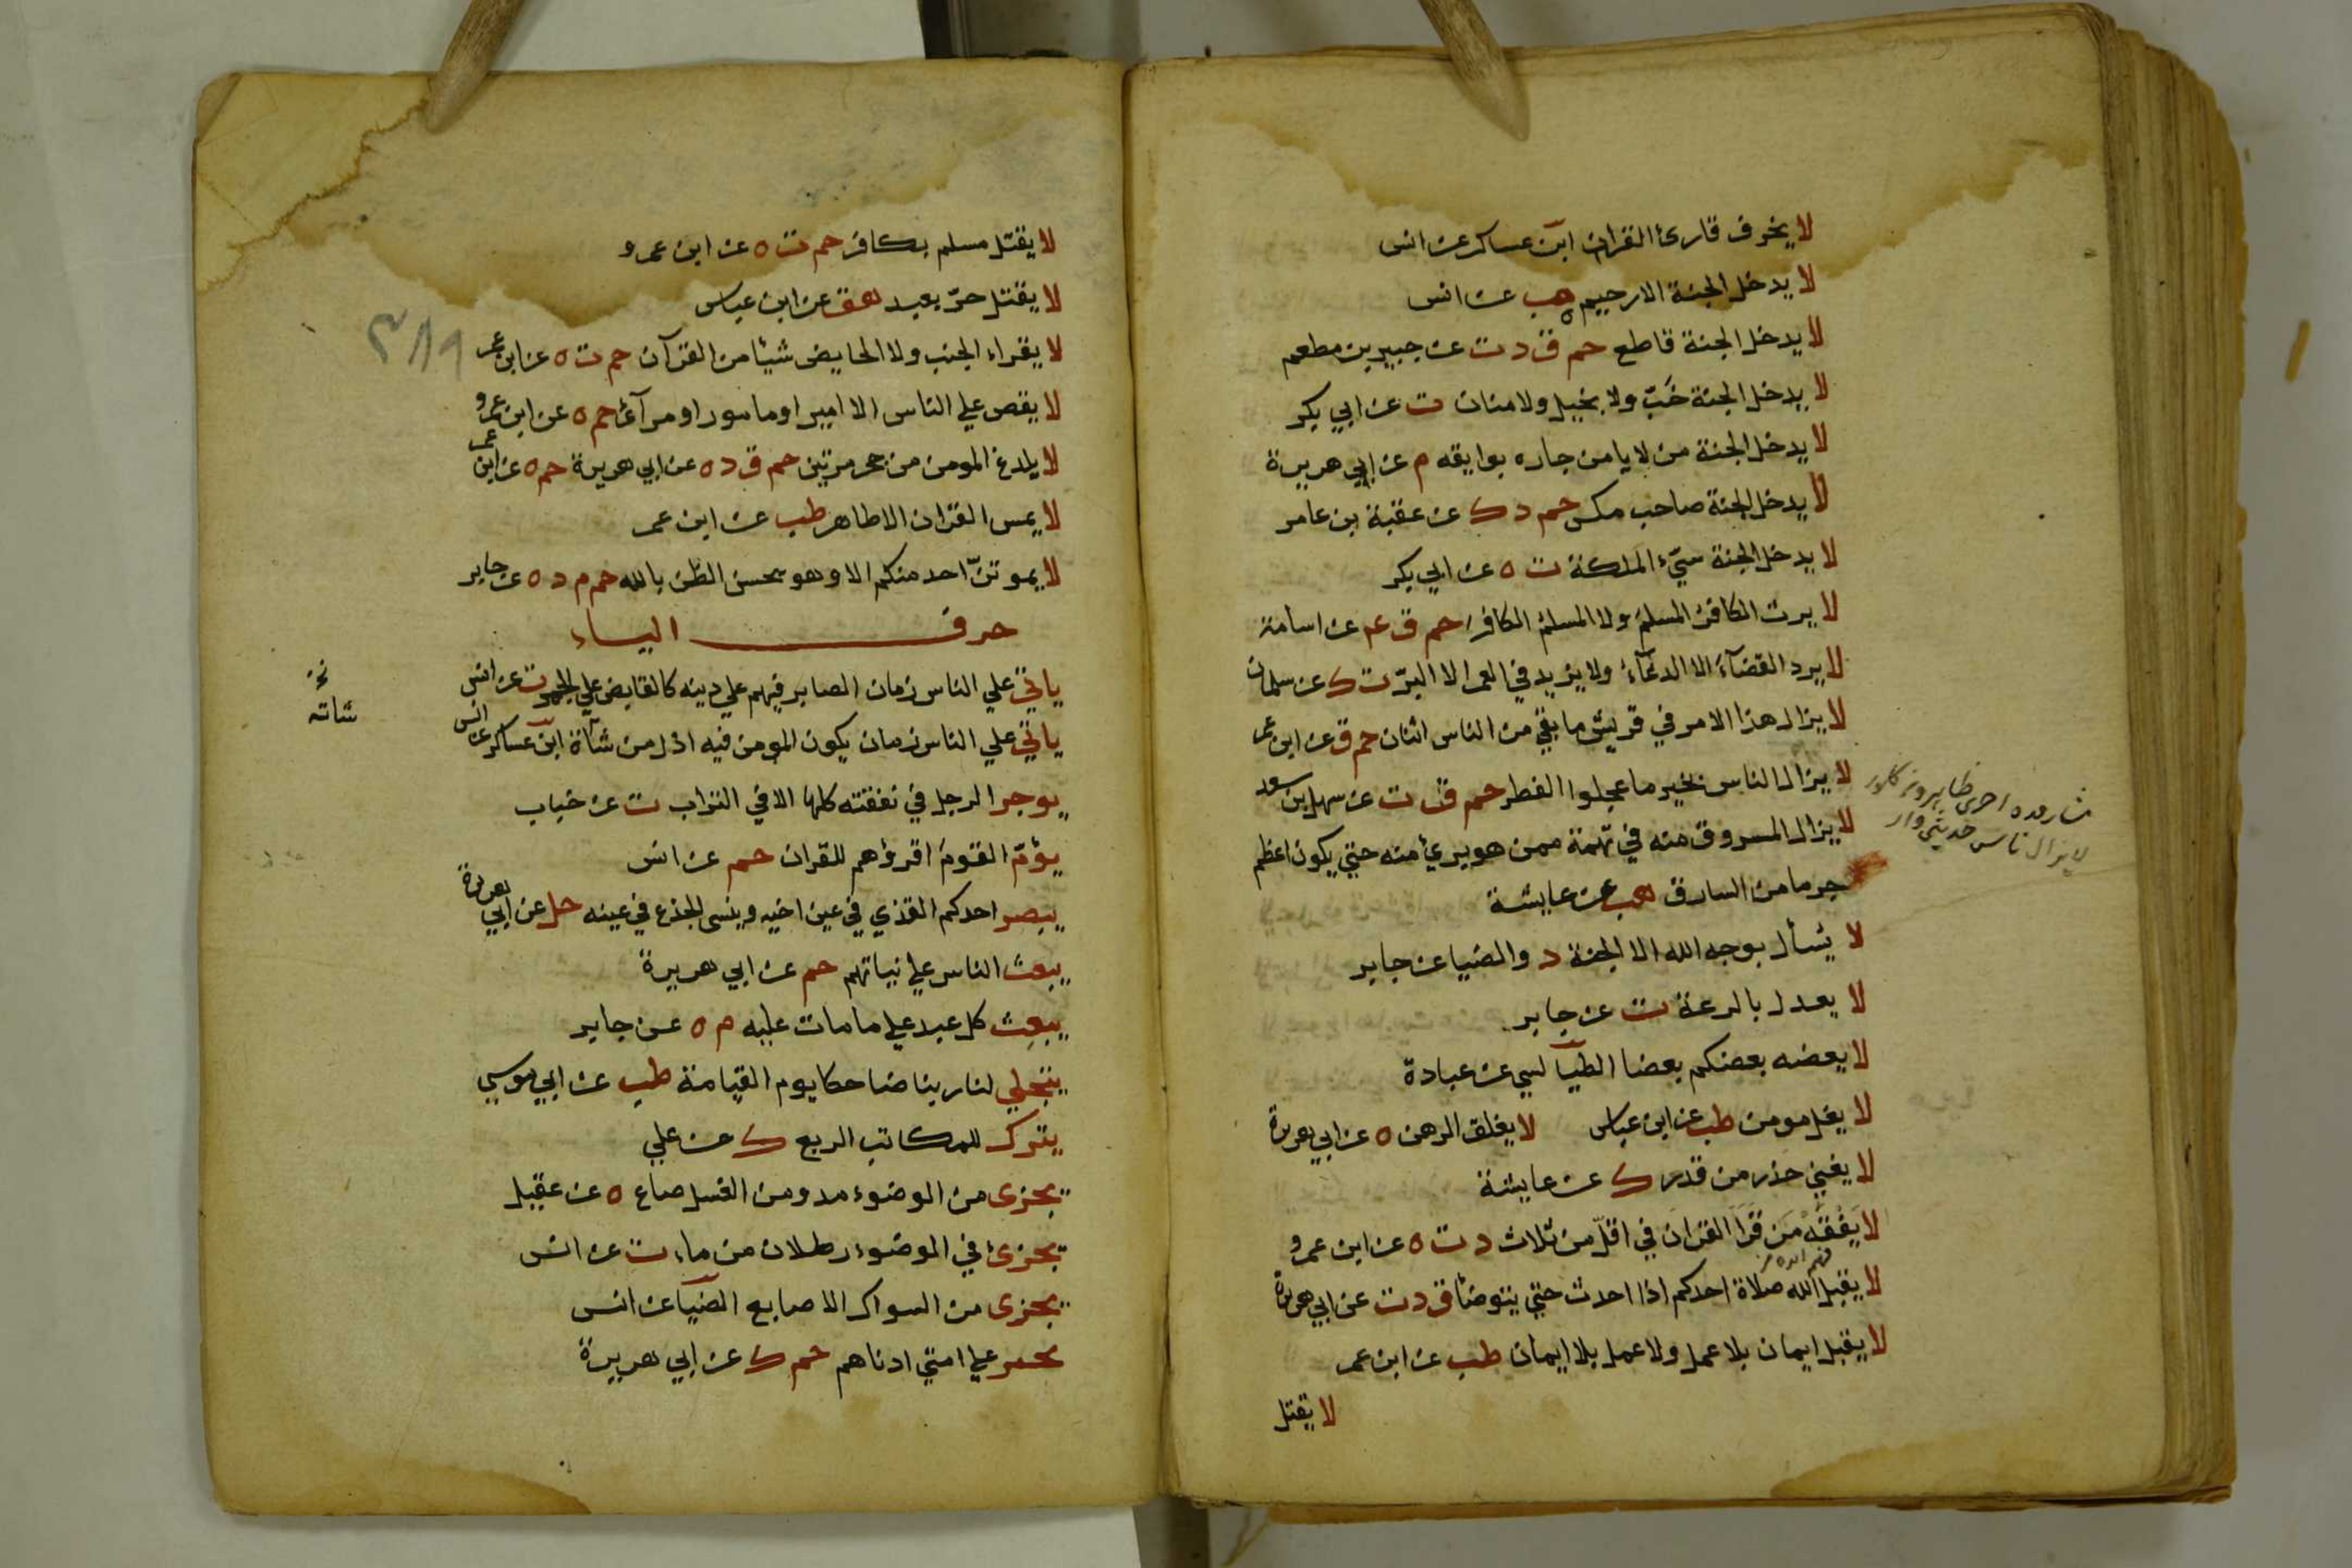 لا يخرف قارئ القران ابن عساكر عن انس
لا يدخل الجنة الا رحيم هب عن انس
لا يدخل الجنة قاطع حم ق د ت عن جبير بن مطعم
لا يدخل الجنة خَبّ ولا بخيل ولا منان ت عن ابي بكر
لا يدخل الجنة من لا يامن جاره بوايقه م عن ابي هريرة
لا يدخل الجنة صاحب مكس حم د ك عن عقبة بن عامر
لا يدخل الجنة سيّء الملكة ت ه عن ابي بكر
لا يرث الكافرُ المسلمَ ولا المسلمُ الكافرَ حم ق عم عن اسامة
لا يرد القضآءَ الا الدعآءُ ولا يزيد في العمر الا البرّ ت ك عن سلمان
لا يزال هذا الامر في قريش ما بقي من الناس اثنان حم ق عن ابن عمر
لا يزال الناس بخير ما عجلوا الفطر حم ق ت عن سهل ابن سعد
لا يزال المسروق منه في تهمة ممن هو بريئ منه حتي يكون اعظم
جرما من السارق هب عن عايشة
لا يسأل بوجه الله الا الجنة د والضيا عن جابر
لا يعدل بالرعة ت عن جابر
لا يعضه بعضكم بعضا الطيالسي عن عبادة
لا يغل مومن طب عن ابن عباس لا يغلق الرهن ه عن ابي هريرة
لا يغني حذر من قدر ك عن عايشة
لا يَفْقَهُ مَن قَرَأ القرانَ في اقلّ من ثلاث د ت ه عن ابن عمرو
لا يقبل الله صلاة احدكم اذا احدث حتي يتوضأ ق د ت عن ابي هريرة
لا يقبل ايمان بلا عمل ولا عمل بلا ايمان طب عن ابن عمر
لا يقتل
لا يزال ناس حديثي وار
لا يقتل مسلم بكافر حم ت ه عن ابن عمرو
لا يقتل حرّ بعبد هق عن ابن عباس
لا يقراء الجنب ولا الحايض شيئا من القرآن حم ت ه عن ابن عمر
لا يقص علي الناس الا امير او مامور او مرآء حم ه عن ابن عمرو
لا يلدغ المومن من جحر مرتين حم ق د ه عن ابي هريرة حم ه عن ابن عمر
لا يمس القران الا طاهر طب عن ابن عمر
لا يموتنّ احد منكم الا وهو يحسن الظن بالله حم م د ه عن جابر
حرف الياء
ياتي علي الناس زمان الصابر فيهم علي دينه كالقابض علي الجمر ت عن انس
ياتي علي الناس زمان يكون المومن فيه اذل من شاة ابن عساكر عن انس
يوجر الرجل في نفقته كلها الا في التراب ت عن خباب
يؤمّ القومَ اقرؤهم للقران حم عن انس
يبصر احدكم القذي في عين اخيه وينسى الجذع في عينه حل عن ابي هريرة
يبعث الناس علي نياتهم حم عن ابي هريرة
يبعث كل عبد علي ما مات عليه م ه عن جابر
يتجلي لنا ربنا ضاحكا يوم القيامة طب عن ابي موسي
يترك للمكاتب الربع ك عن علي
يجزى من الوضوء مد ومن الغسل صاع ه عن عقيل
يجزئ في الوضوء رطلان من ماء ت عن انس
يجزى من السواك الاصابع الضيا عن انس
يجير علي امتي ادناهم حم ك عن ابي هريرة
نخ
شاته
٣٨٩